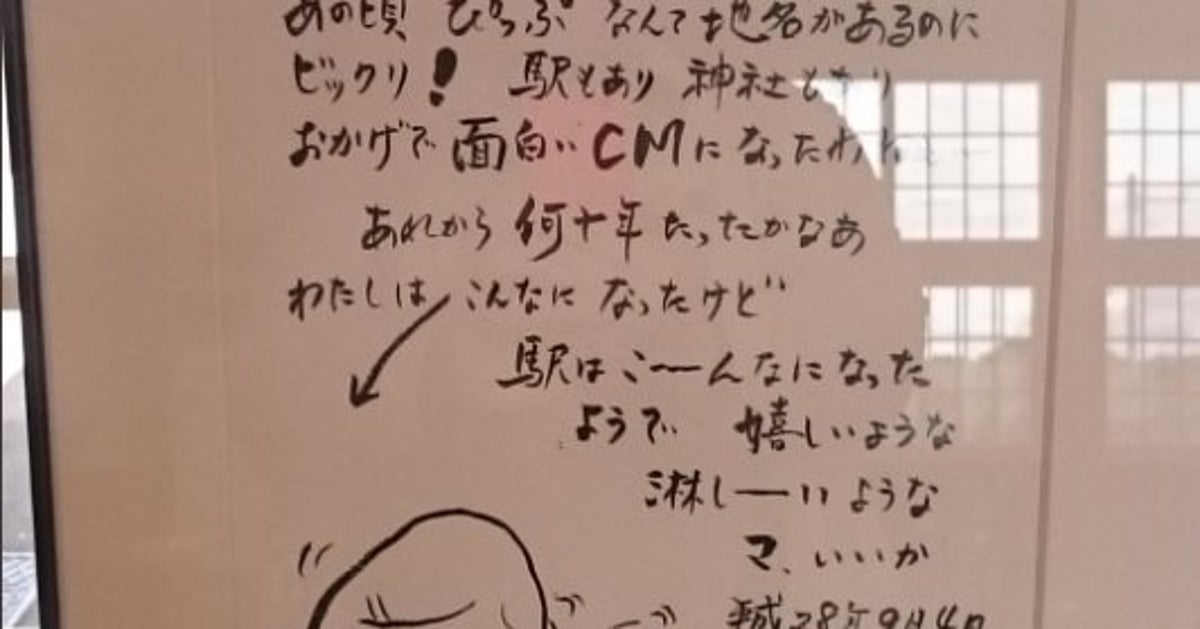 あの頃 ぴっぷ なんて地名があるのに
ビックリ! 駅もあり 神社もあり
おかげで 面白い CMに なったわ
あれから 何十年 たったかなあ
わたしは こんなに なったけど
駅は こーんなに なった
ようで 嬉しいような
淋しーい ような
マ、いいか
平成28年9月4日